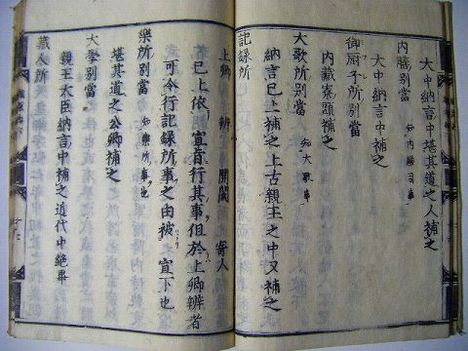 大中納言中堪其道之人補之
内膳別當 知内膳司事
大中納言中補之
御厨子所別當
内藏寮頭補之
大歌所別當 知大歌事
納言已上補之上古親王之中又補之
記録所
上卿 辨 開闔 寄人
已上依宣旨行其事但於上卿辨者
可令行記録所事之由被宣下也
樂所別當 知樂所事也
堪其道之公卿補之
大學別當
親王大臣納言中補之近代中絶畢
藏人所